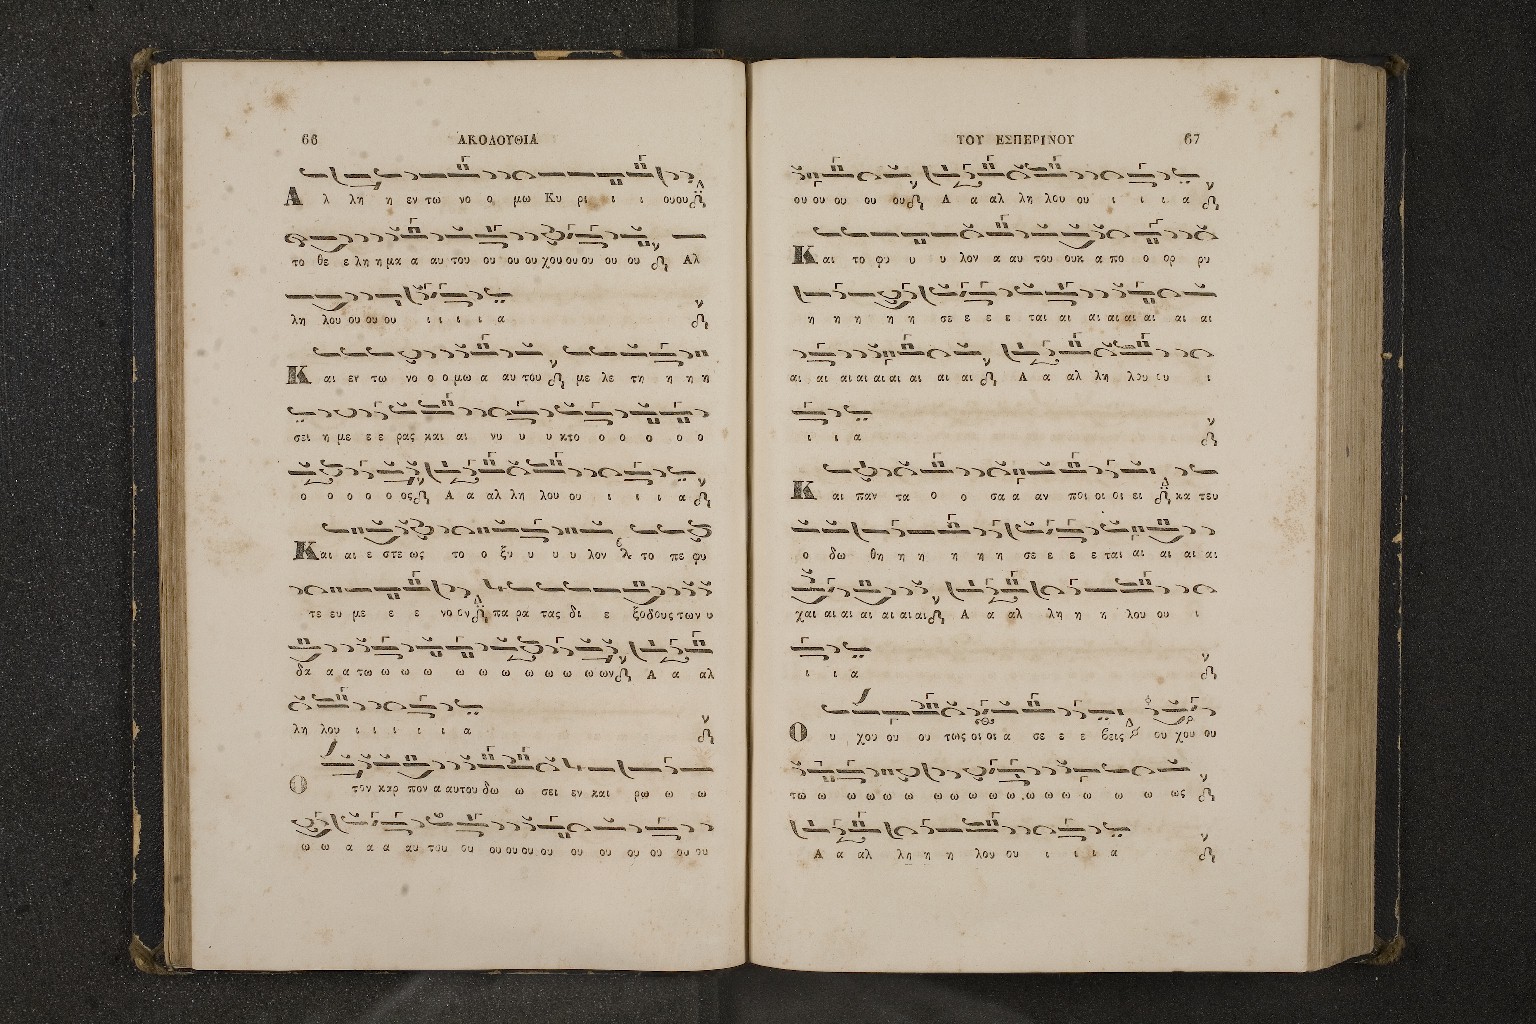 66
ΑΚΟΛΟΥΘΙΑ
Α λ λη η εν τω νο ο μω Κυ ρι ι ι ουου
το θε ε λη η μα α αυ του ου ου ου χου ου ου ου ου Αλ
λη λου ου ου ου ι ι ι ι α
Και εν τω νο ο ο μω α αυ του με λε τη η η η
σει η με ε ε ρας και αι νυ υ υ κτο ο ο ο ο ο
ο ο ο ο ο ος Α α αλ λη λου ου ι ι ι α
Και αι ε στε ως το ο ξυ υ υ υ λον το πε φυ
τε ευ με ε ε νο ον πα ρα τας δι ε ξοδους των υ
δα α α τω ω ω ω ω ω ω ω ω ω ων Α α αλ
λη λου ι ι ι ι ι α
Ο τον καρ πον α αυτου δω ω σει εν και ρω ω ω
ω ω α α α αυ του ου ου ου ου ου ου ου ου ου ου ου
ΤΟΥ ΕΣΠΕΡΙΝΟΥ
67
ου ου ου ου ου ου Α α αλ λη λου ου ι ι ι α
Και το φυ υ υ λον α αυ του ουκ α πο ο ορ ρυ
η η η η η σε ε ε ε ται αι αι αι αι αι αι αι
αι αι αι αι αι αι αι αι Α α αλ λη λου ου ι
ι ι α
Και παν τα ο ο σα α αν ποι οι οι ει κα τευ
ο δω θη η η η η η σε ε ε ε ται αι αι αι αι
χαι αι αι αι αι αι αι Α α αλ λη η η λου ου ι
ι ι α
Ο υ χου ου ου τως οι οι α σε ε ε βεις ου χου ου
τω ω ω ω ω ω ω ω ω ω ω ω ω ω ω ω ω ω ως
Α α αλ λη η η λου ου ι ι ι α